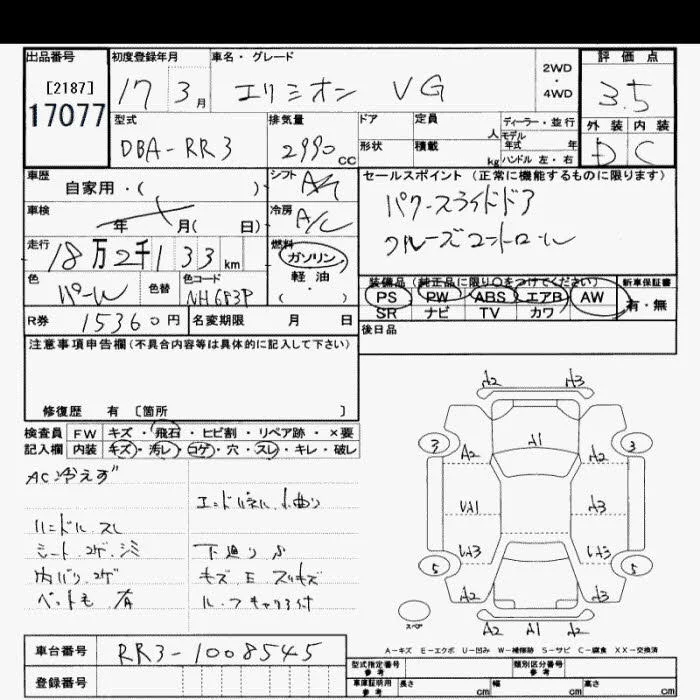 出品番号 初度登録年月 車名・グレード 評価点
[2187] 17 3月 エリシオン VG 2WD ・ 4WD 3.5
17077 外装 内装
型式 排気量 ドア 定員 人 ディーラー・並行
DBA-RR3 2990 cc 形状 積載 kg モデル年式 年 D C
ハンドル 左・右
車歴 自家用・( ) シフト セールスポイント (正常に機能するものに限ります)
車検 年 月( 日) 冷房 A/C パワースライドドア
走行 18万2千133km 燃料 ガソリン クルーズコントロール
軽油
・( )
色 パールW 色替 色コード NH683P
装備品 (純正品に限り○をつけてください) 新車保証書
PS PW ABS エアB AW 有・無
SR ナビ TV カワ
R券 15360円 名変期限 月 日
後日品
注意事項申告欄(不具合内容等は具体的に記入して下さい)
修復歴 有 [箇所 ]
検査員 FW キズ・飛石・ヒビ割・リペア跡・×要
記入欄 内装 キズ・汚レ・コゲ・穴・スレ・キレ・破レ
AC冷えず
エンドパネル小曲り
ハンドル スレ
シート コゲ シミ 下廻り
内バリ コゲ キズ E スリキズ
ペット毛 有
A2 A3
3 3
A2 A1 A2
UA1 A3
UA3 UA3
5 5
A2 A3
スペア A2 A1 A2
A-キズ E-エクボ U-凹み W-補修跡 S-サビ C-腐食 XX-交換済
車台番号 RR3-1008545
登録番号
型式指定番号 参考 類別区分番号 参考
車庫証明用 参考 長さ cm 幅 cm 高さ cm